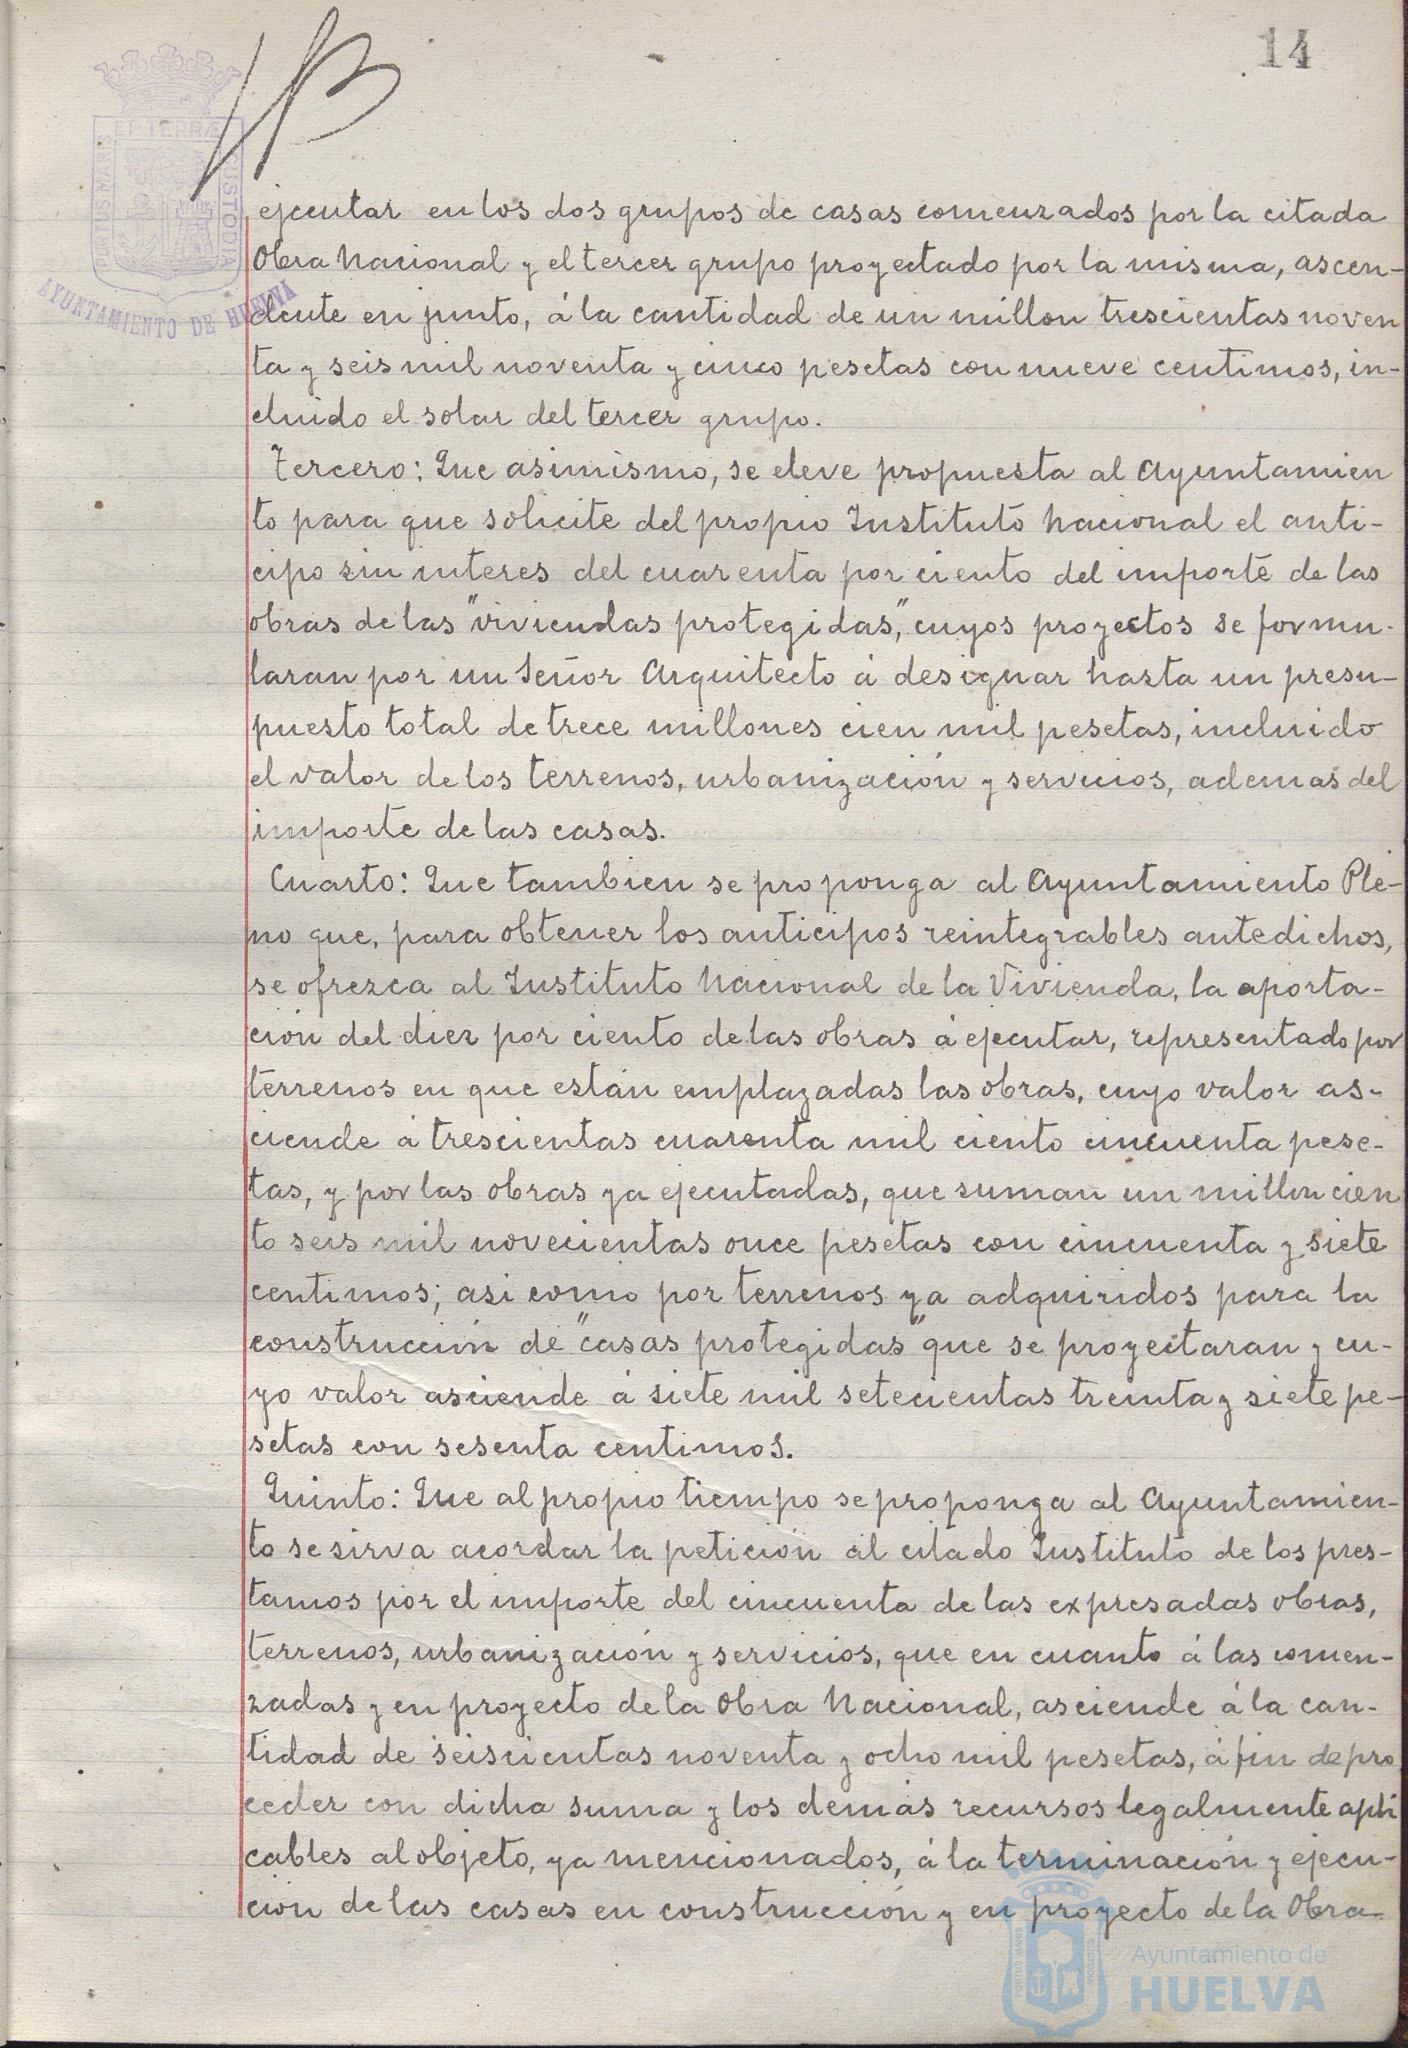 14
ET TERRÆ
PORTUS MARIS
CUSTODIA
AYUNTAMIENTO DE HUELVA
ejecutar en los dos grupos de casas comenzados por la citada
Obra Nacional y el tercer grupo proyectado por la misma, ascen-
dente en junto, á la cantidad de un millon trescientas noven
ta y seis mil noventa y cinco pesetas con nueve centimos, in-
cluido el solar del tercer grupo.
Tercero: Que asimismo, se eleve propuesta al Ayuntamien
to para que solicite del propio Instituto Nacional el anti-
cipo sin interes del cuarenta por ciento del importe de las
obras de las "viviendas protegidas", cuyos proyectos se formu-
laran por un Señor Arquitecto á designar hasta un presu-
puesto total de trece millones cien mil pesetas, incluido
el valor de los terrenos, urbanización y servicios, ademas del
importe de las casas.
Cuarto: Que tambien se proponga al Ayuntamiento Ple-
no que, para obtener los anticipos reintegrables antedichos,
se ofrezca al Instituto Nacional de la Vivienda, la aporta-
ción del diez por ciento de las obras á ejecutar, representado por
terrenos en que están emplazadas las obras, cuyo valor as-
ciende á trescientas cuarenta mil ciento cincuenta pese-
tas, y por las obras ya ejecutadas, que suman un millon cien
to seis mil novecientas once pesetas con cincuenta y siete
centimos; asi como por terrenos ya adquiridos para la
construcción de "casas protegidas" que se proyectaran y cu-
yo valor asciende á siete mil setecientas treinta y siete pe-
setas con sesenta centimos.
Quinto: Que al propio tiempo se proponga al Ayuntamien-
to se sirva acordar la petición al citado Instituto de los pres-
tamos por el importe del cincuenta de las expresadas obras,
terrenos, urbanización y servicios, que en cuanto á las comen-
zadas y en proyecto de la Obra Nacional, asciende á la can-
tidad de seiscientas noventa y ocho mil pesetas, á fin de pro
ceder con dicha suma y los demás recursos legalmente apli
cables al objeto, ya mencionados, á la terminación y ejecu-
cion de las casas en construcción y en proyecto de la Obra
Ayuntamiento de
HUELVA